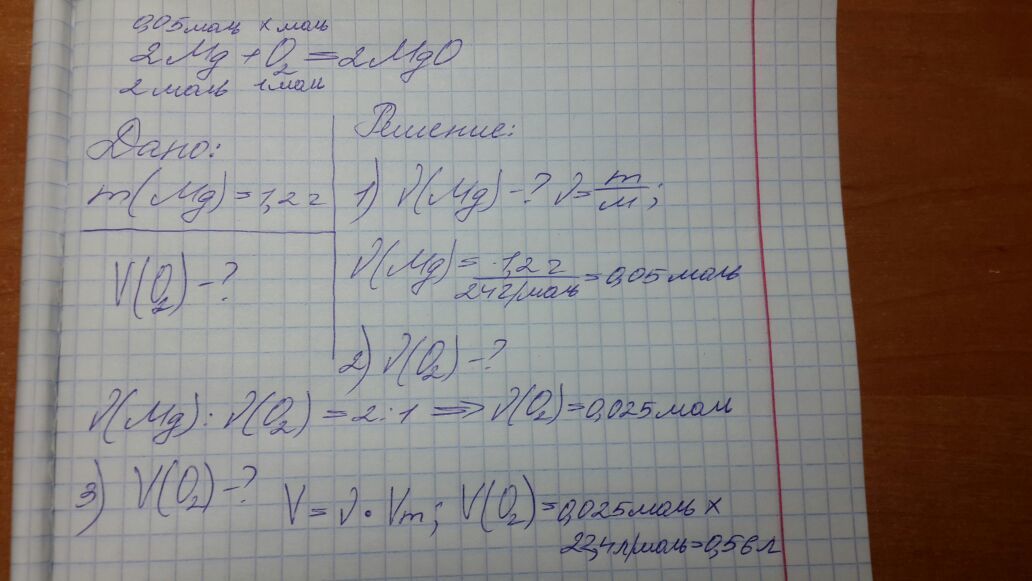 0,05моль x моль
2Mg + O₂ = 2MgO
2 моль 1 моль
Дано:
m(Mg) = 1,2 г
V(O₂) - ?
Решение:
1) ν(Mg) - ? ν = m/M;
ν(Mg) = 1,2 г/24 г/моль = 0,05 моль
2) ν(O₂) - ?
ν(Mg) : ν(O₂) = 2 : 1 ⇒ ν(O₂) = 0,025 моль
3) V(O₂) - ? V = ν · Vm; V(O₂) = 0,025 моль x
22,4 л/моль = 0,56 л